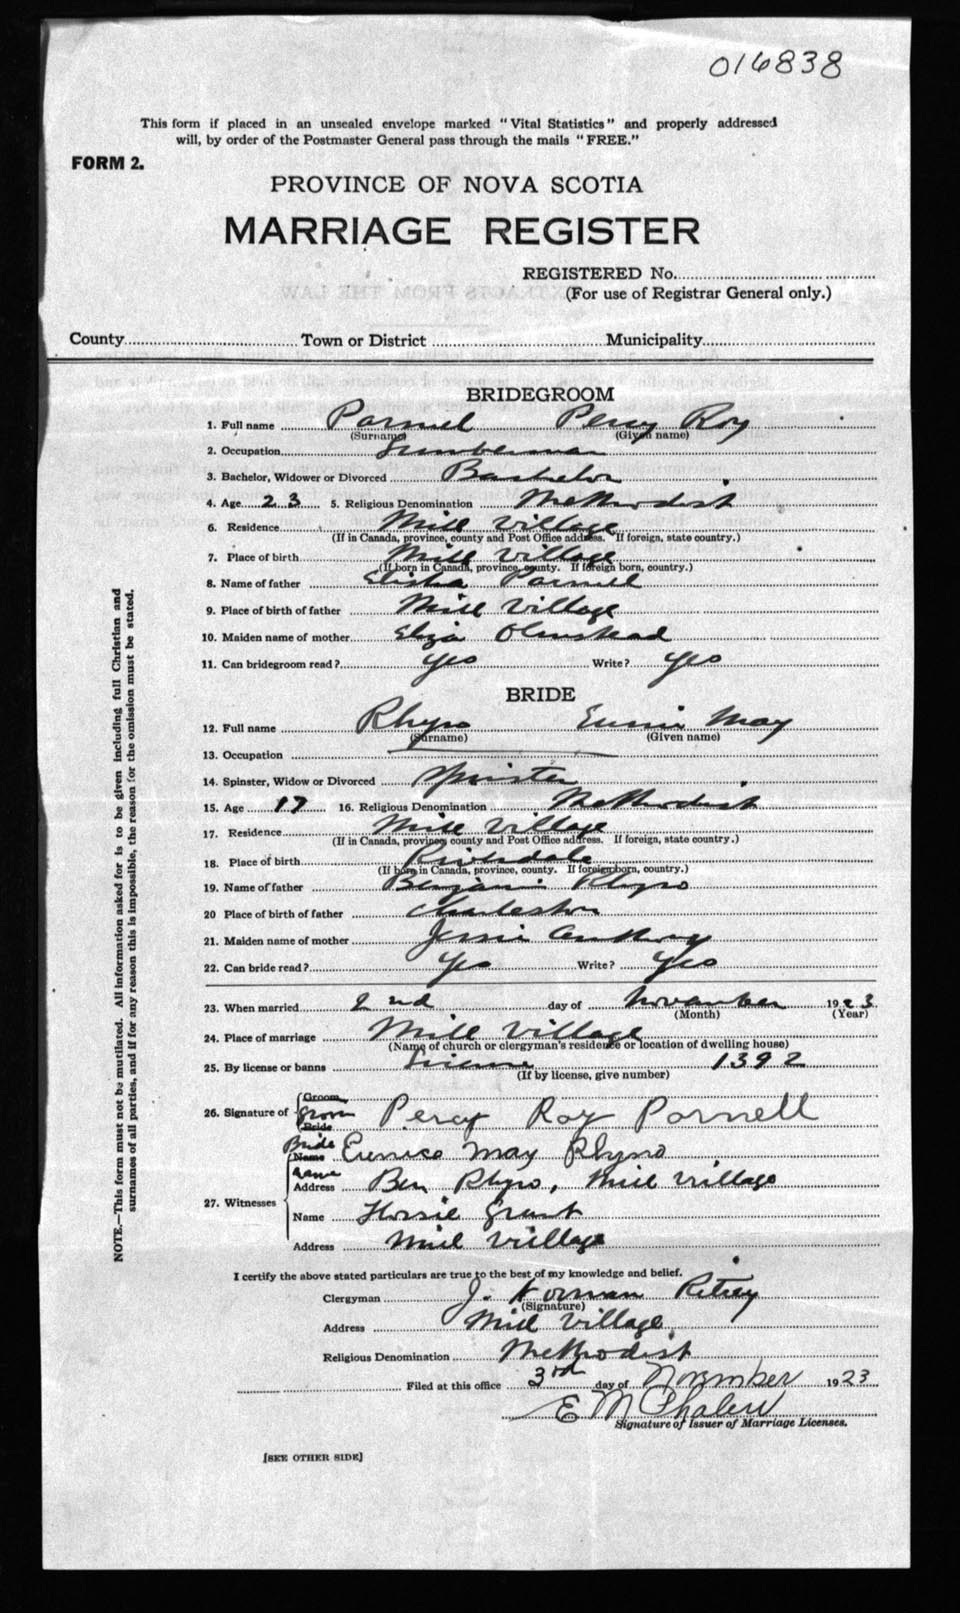 016838
This form if placed in an unsealed envelope marked "Vital Statistics" and properly addressed
will, by order of the Postmaster General pass through the mails "FREE."
FORM 2.
PROVINCE OF NOVA SCOTIA
MARRIAGE REGISTER
REGISTERED No.
(For use of Registrar General only.)
County Town or District Municipality
BRIDEGROOM
1. Full name Parnel Percy Roy
(Surname) (Given name)
2. Occupation Lumberman
3. Bachelor, Widower or Divorced Bachelor
4. Age 23 5. Religious Denomination Methodist
6. Residence Mill Village
(If in Canada, province, county and Post Office address. If foreign, state country.)
7. Place of birth Mill Village
(If born in Canada, province, county. If foreign born, country.)
8. Name of father Elisha Parnel
9. Place of birth of father Mill Village
10. Maiden name of mother Eliza Olmstead
11. Can bridegroom read? Yes Write? Yes
BRIDE
12. Full name Rhyno Eunice May
(Surname) (Given name)
13. Occupation
14. Spinster, Widow or Divorced Spinster
15. Age 17 16. Religious Denomination Methodist
17. Residence Mill Village
(If in Canada, province, county and Post Office address. If foreign, state country.)
18. Place of birth Riversdale
(If born in Canada, province, county. If foreign born, country.)
19. Name of father Benjamin Rhyno
20 Place of birth of father Charleston
21. Maiden name of mother Jessie Anthony
22. Can bride read? Yes Write? Yes
23. When married 2nd day of November 1923
(Month) (Year)
24. Place of marriage Mill Village
(Name of church or clergyman's residence or location of dwelling house)
25. By license or banns License 1392
(If by license, give number)
Groom
26. Signature of Groom Percy Roy Parnell
Bride
Bride Name Eunice May Rhyno
Name
Address Ben Rhyno, Mill Village
27. Witnesses
Name Flossie Grant
Address Mill Village
I certify the above stated particulars are true to the best of my knowledge and belief.
Clergyman J. Norman
(Signature)
Address Mill Village
Religious Denomination Methodist
Filed at this office 3rd day of November 1923
E M Phalen
Signature of Issuer of Marriage Licenses.
[SEE OTHER SIDE]
NOTE.—This form must not be mutilated. All information asked for is to be given including full Christian and
surnames of all parties, and if for any reason this is impossible, the reason for the omission must be stated.